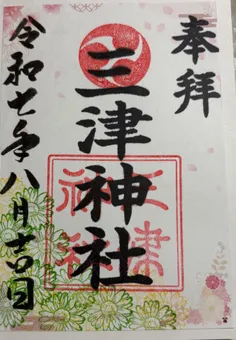 奉拝
三津神社
令和七年八月十四日
三津
神社